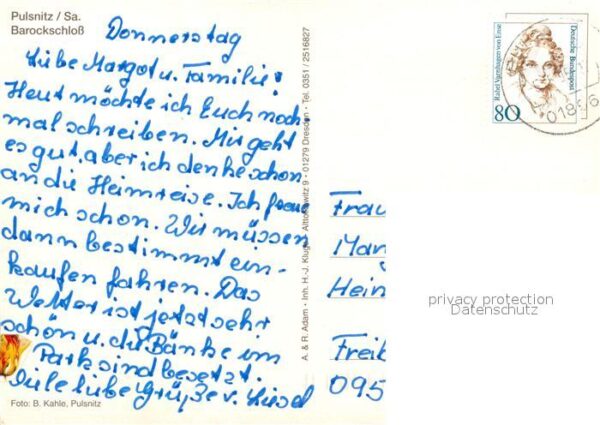 Pulsnitz / Sa.
Barockschloß
Donnerstag
Liebe Margot u. Familie!
Heut möchte ich Euch noch
mal schreiben. Mir geht
es gut, aber ich denke schon
an die Heimreise. Ich freue
mich schon. Wir müssen
dann bestimmt ein-
kaufen fahren. Das
Wetter ist jetzt sehr
schön u. die Bänke im
Park sind besetzt.
Viele liebe Grüße v. Liesel
Foto: B. Kahle, Pulsnitz
A. & R. Adam - Inh. H.-J. Kluge - 01279 Dresden - Tel. 0351 / 2516827
Rahel Varnhagen von Ense
Deutsche Bundespost
80
Frau
Mar
Hein
Freib
095
privacy protection
Datenschutz